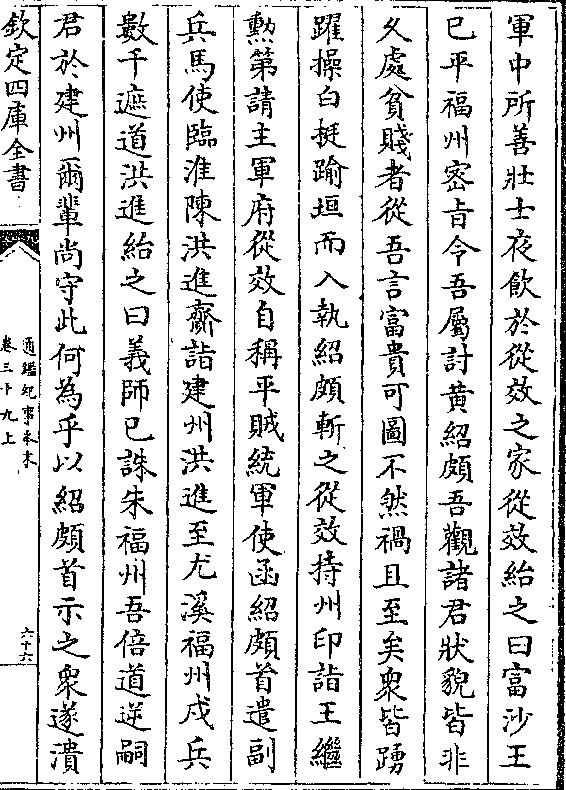 軍中所善壯士夜飲於從效之家從效紿之曰富沙王
已平福州密旨令吾屬討黃紹頗吾觀諸君狀貌皆非
久處貧賤者從吾言富貴可圖不然禍且至矣衆皆踴
躍操白挺踰垣而入執紹頗斬之從效持州印詣王繼
勲第請主軍府從效自稱平賊統軍使函紹頗首遣副
兵馬使臨淮陳洪進齎詣建州洪進至尤溪福州戍兵
數千遮道洪進紿之曰義師已誅朱福州吾倍道逆嗣
君於建州爾輩尚守此何為乎以紹頗首示之衆遂潰
欽定四庫全書
通鑑紀事本末
卷三十九上
六十六